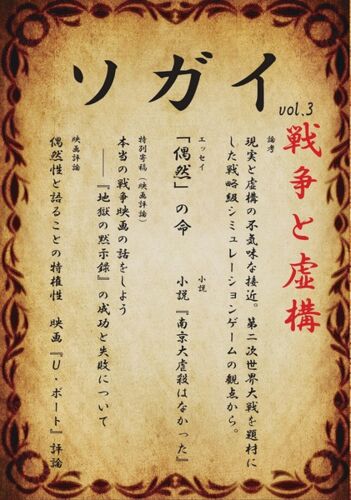 ソガイ
vol.3
戦争と虚構
論考
現実と虚構の不気味な接近。第二次世界大戦を題材に
した戦略級シミュレーションゲームの観点から。
エッセイ
「偶然」の命
小説
小説『南京大虐殺はなかった』
特別寄稿(映画評論)
本当の戦争映画の話をしよう
――『地獄の黙示録』の成功と失敗について
映画評論
偶然性と語ることの特権性 映画『U・ボート』評論